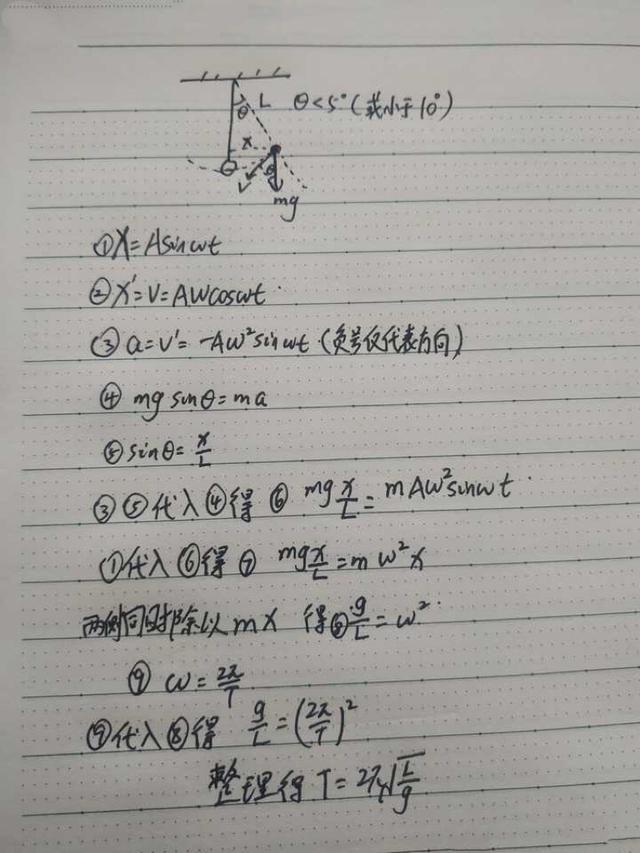 θ L θ<5°(或小于10°)
x
θ
mg
①X=Asinwt
②X'=V=AWcoswt
③a=v'=-Aw²sinwt (负号仅代表方向)
④ mg sinθ=ma
⑤sinθ=x/L
③⑤代入④得 ⑥ mg x/L = mAw²sinwt
①代入⑥得 ⑦ mg x/L = m w² x
两侧同时除以 mx 得⑧ g/L = w²
⑨ w = 2π/T
⑨代入⑧得 g/L = (2π/T)²
整理得 T=2π√(L/g)